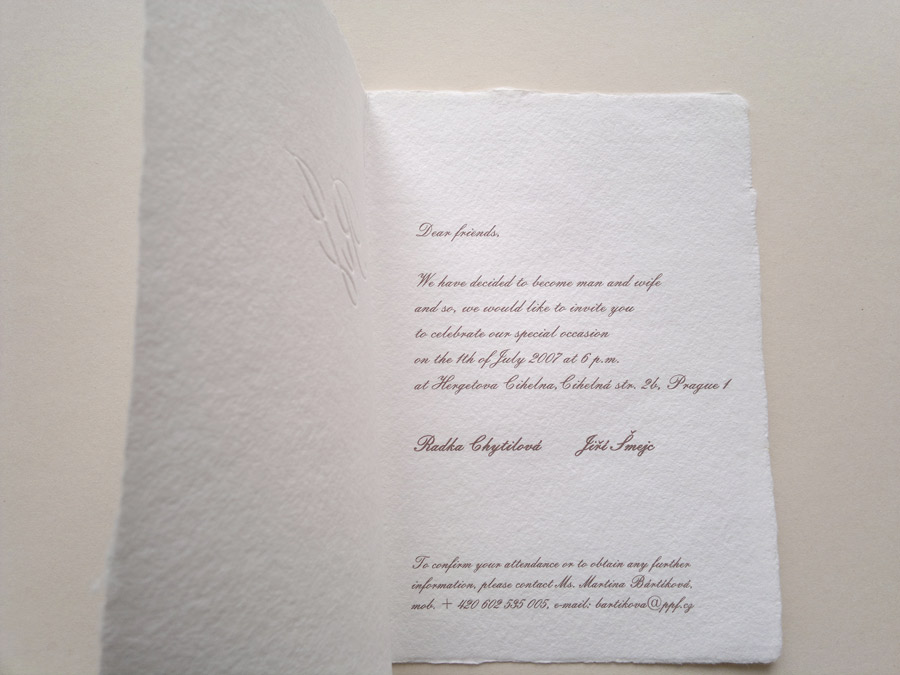 Dear friends,
We have decided to become man and wife
and so, we would like to invite you
to celebrate our special occasion
on the 1th of July 2007 at 6 p.m.
at Hergetova Cihelna, Cihelná str. 2b, Prague 1
Radka Chytilová Jiří Šmejc
To confirm your attendance or to obtain any further
information, please contact Ms. Martina Bártíková,
mob. + 420 602 535 005, e-mail: bartikova@ppf.cz